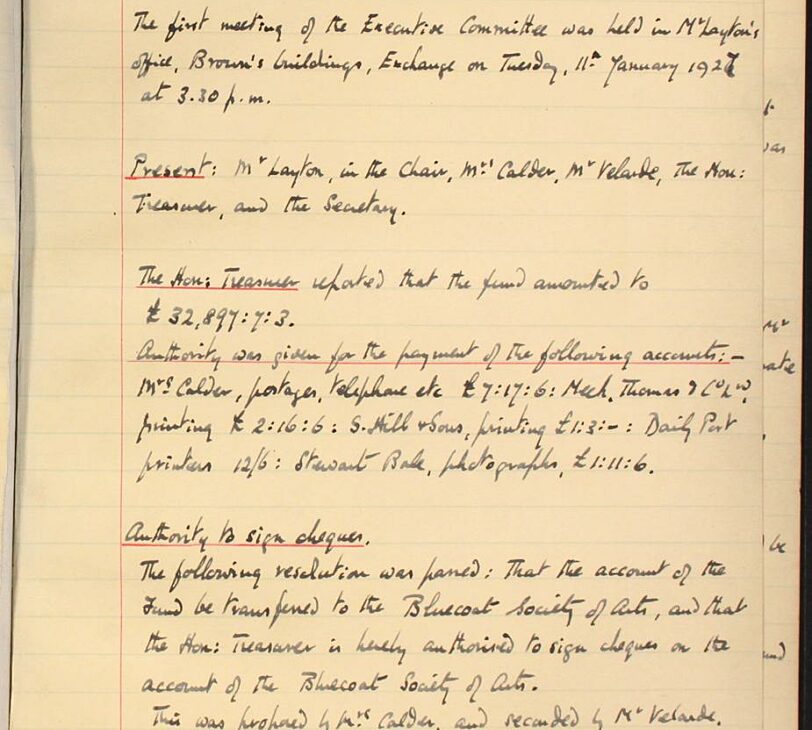 The first meeting of the Executive Committee was held in Mr Layton's
office, Brown's buildings, Exchange on Tuesday, 11th January 1927
at 3.30 p.m.
Present: Mr Layton, in the Chair, Mrs Calder, Mr Velarde, The Hon:
Treasurer, and the Secretary.
The Hon: Treasurer reported that the fund amounted to
£32,897:7:3.
Authority was given for the payment of the following accounts:-
Mrs Calder, postages, telephone etc £7:17:6: Meek, Thomas & Co Ld,
printing £2:16:6: S. Hill & Sons, printing £1:3:-: Daily Post
printers 12/6: Stewart Bale, photographs, £1:11:6.
Authority to sign cheques.
The following resolution was passed: That the account of the
Fund be transferred to the Bluecoat Society of Arts, and that
the Hon: Treasurer is hereby authorised to sign cheques on the
account of the Bluecoat Society of Arts.
This was proposed by Mrs Calder, and seconded by Mr Velarde.